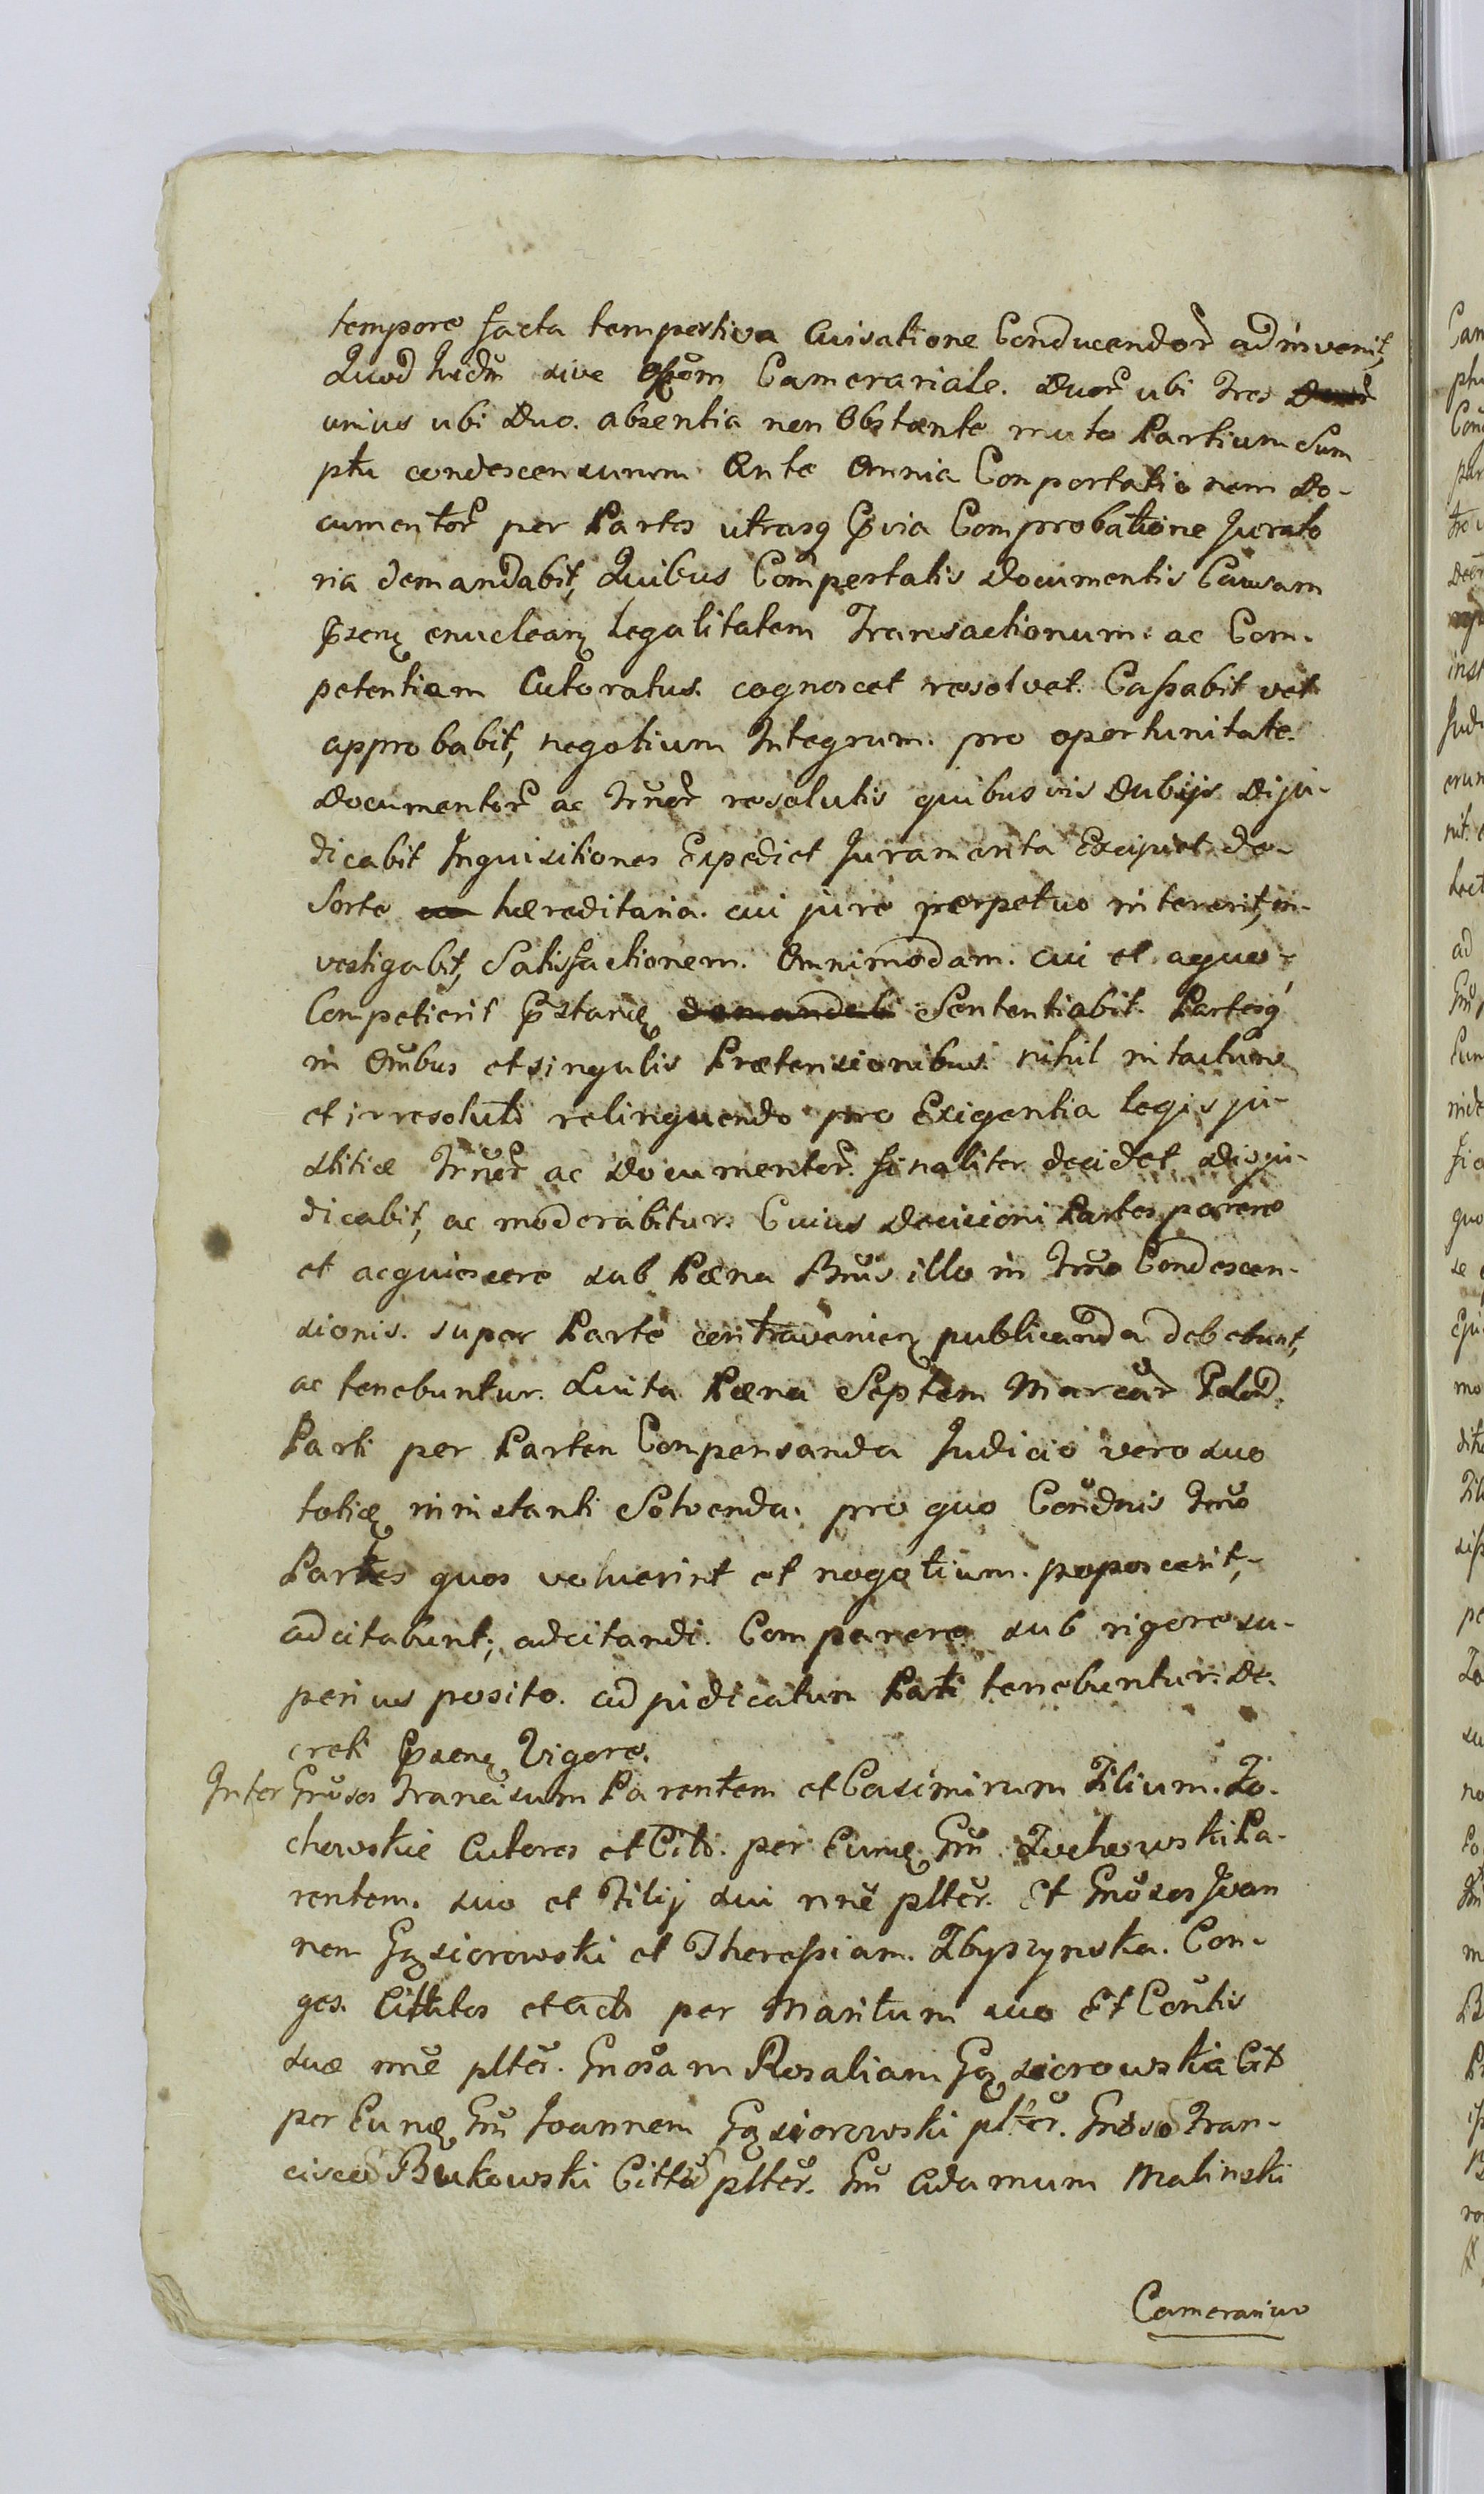 tempore facta tempestiva Avisatione Conducendor̃ adinvenit,
Quod Judm̃ sive Offm̃ Camerariale. Duor̃ ubi Tres
unius ubi Duo. absentia non Obstante muto Partium Sum
ptu condescensurum Ante Omnia Comportationem Do-
cumentor̃ per Partes utrasq p̃via Comprobatione Jurato
ria demandabit, Quibus Comportatis Documentis Causam
p̃zenę enucleanę legalitatem Transactionum. ac Com-
petentiam Actoratus. cognoscet resolvet. Caßabit vel
approbabit, negotium Integrum. pro oportunitate.
Documentor̃ ac Jrũor̃ resolutis quibusvis Dubijs Diju-
dicabit Inquisitiones Expediet Juramenta Excipiet de
Sorte hæreditaria. cui jure perpetuo intererit, in-
vestigabit, Satisfactionem. Omnimodam. cui et aquo-
Competierit p̃standę Sententiabit. Partesq
in Om̃bus et singulis Prætensionibus. nihil intactum
et irresoluti relinquendo pro Exigentia legis ju-
stitiæ Jrũor̃ ac Documentor̃. finaliter decidet Diju-
dicabit, ac moderabitur. Cuius Decisioni Partes parere
et acquiescere sub Pæna Bñis illo in Trño Condescen-
sionis. super Parte contravenienę publicanda debebunt,
ac tenebuntur. Luita Pæna Septem Marcar̃ Polod.
Parti per Partem Compensanda Judicio vero suo
totiæ in instanti Solvenda. pro quo Cond̃nis Tm̃o
Partes quos voluerint et negotium. poposcerit,
adcitabunt, adcitandi. Comparere sub rigore su-
perius posito. ad judicatum Pati tenebuntur. De-
creti p̃zenę Vigore.
Inter Gñosos Franciscum Parentem et Casimirum Filium. Zo-
chowskie Actores et Cito. per Eumę Gñ Zochowski Pa-
rentem. suo et Filij sui ñne plter. Et Gñosos Joan
nem Gąsiorowski et Thereßiam. Zbyszynska. Con-
ges. Cittatos et Acto per Maritum suo Et Contis
suæ ñne plter. Gñosam Rosaliam Gąsiorowska Cit
per Eunę Gñ Joannem Gąsiorowski plter. Gñoso Fran-
cisco Bukowski Citto plter. Gñ Adamum Malinski
Camerarius